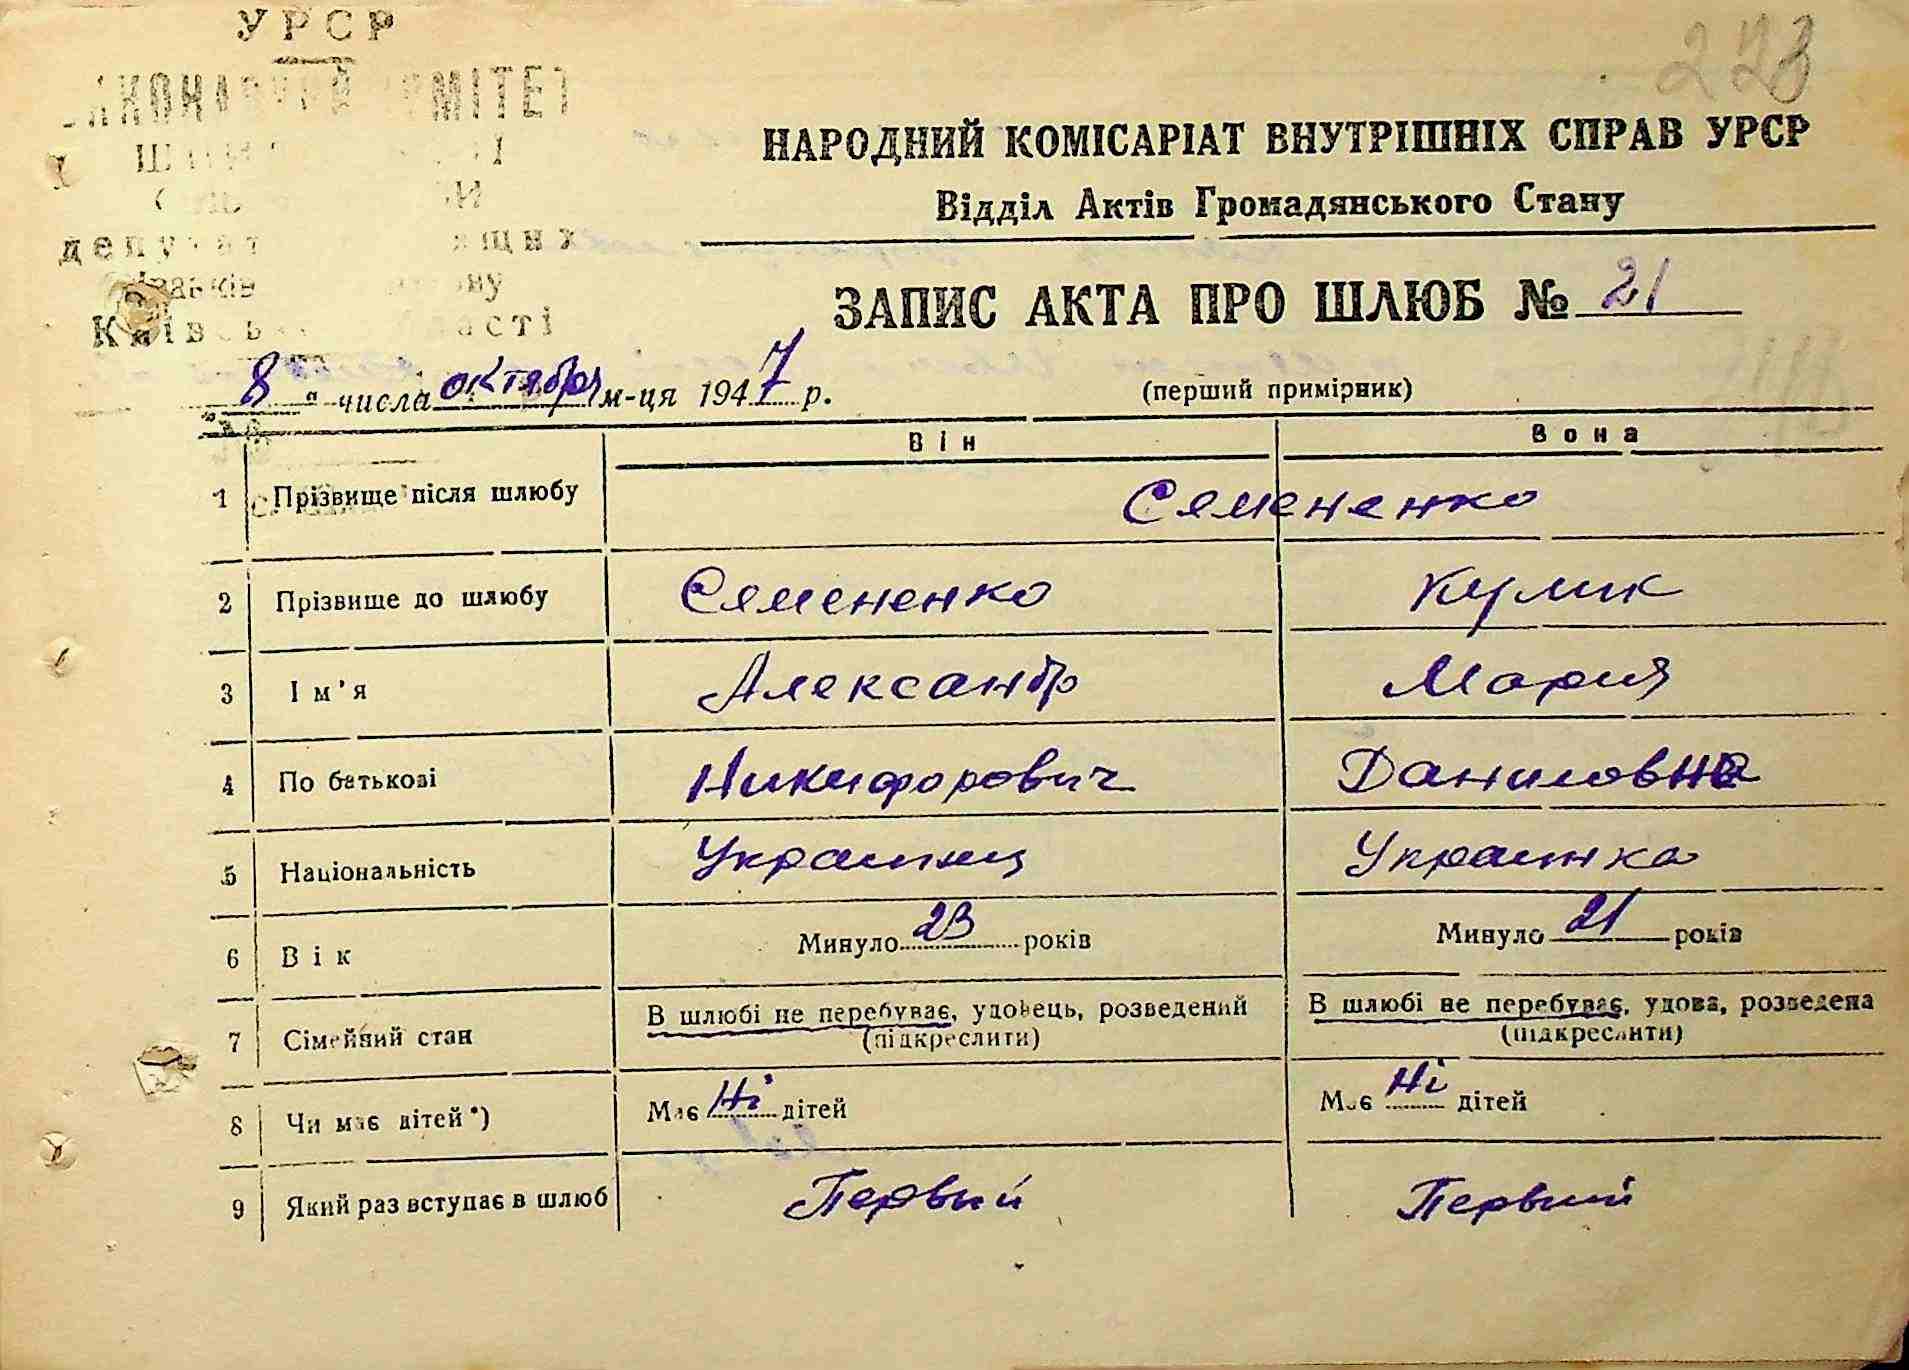 УРСР
223
НАРОДНИЙ КОМІСАРІАТ ВНУТРІШНІХ СПРАВ УРСР
Відділ Актів Громадянського Стану
ЗАПИС АКТА ПРО ШЛЮБ № 21
„ 8 " числа октября м-ця 1947 р.
(перший примірник)
Він Вона
1 Прізвище після шлюбу Семененко
2 Прізвище до шлюбу Семененко Кулик
3 Ім'я Александр Мария
4 По батькові Никифорович Даниловна
5 Національність Украинец Украинка
6 Вік Минуло 23 років Минуло 21 років
7 Сімейний стан В шлюбі не перебуває, удовець, розведений В шлюбі не перебуває, удова, розведена
(підкреслити) (підкреслити)
8 Чи має дітей*) Має Ні дітей Має Ні дітей
9 Який раз вступає в шлюб Первый Первый